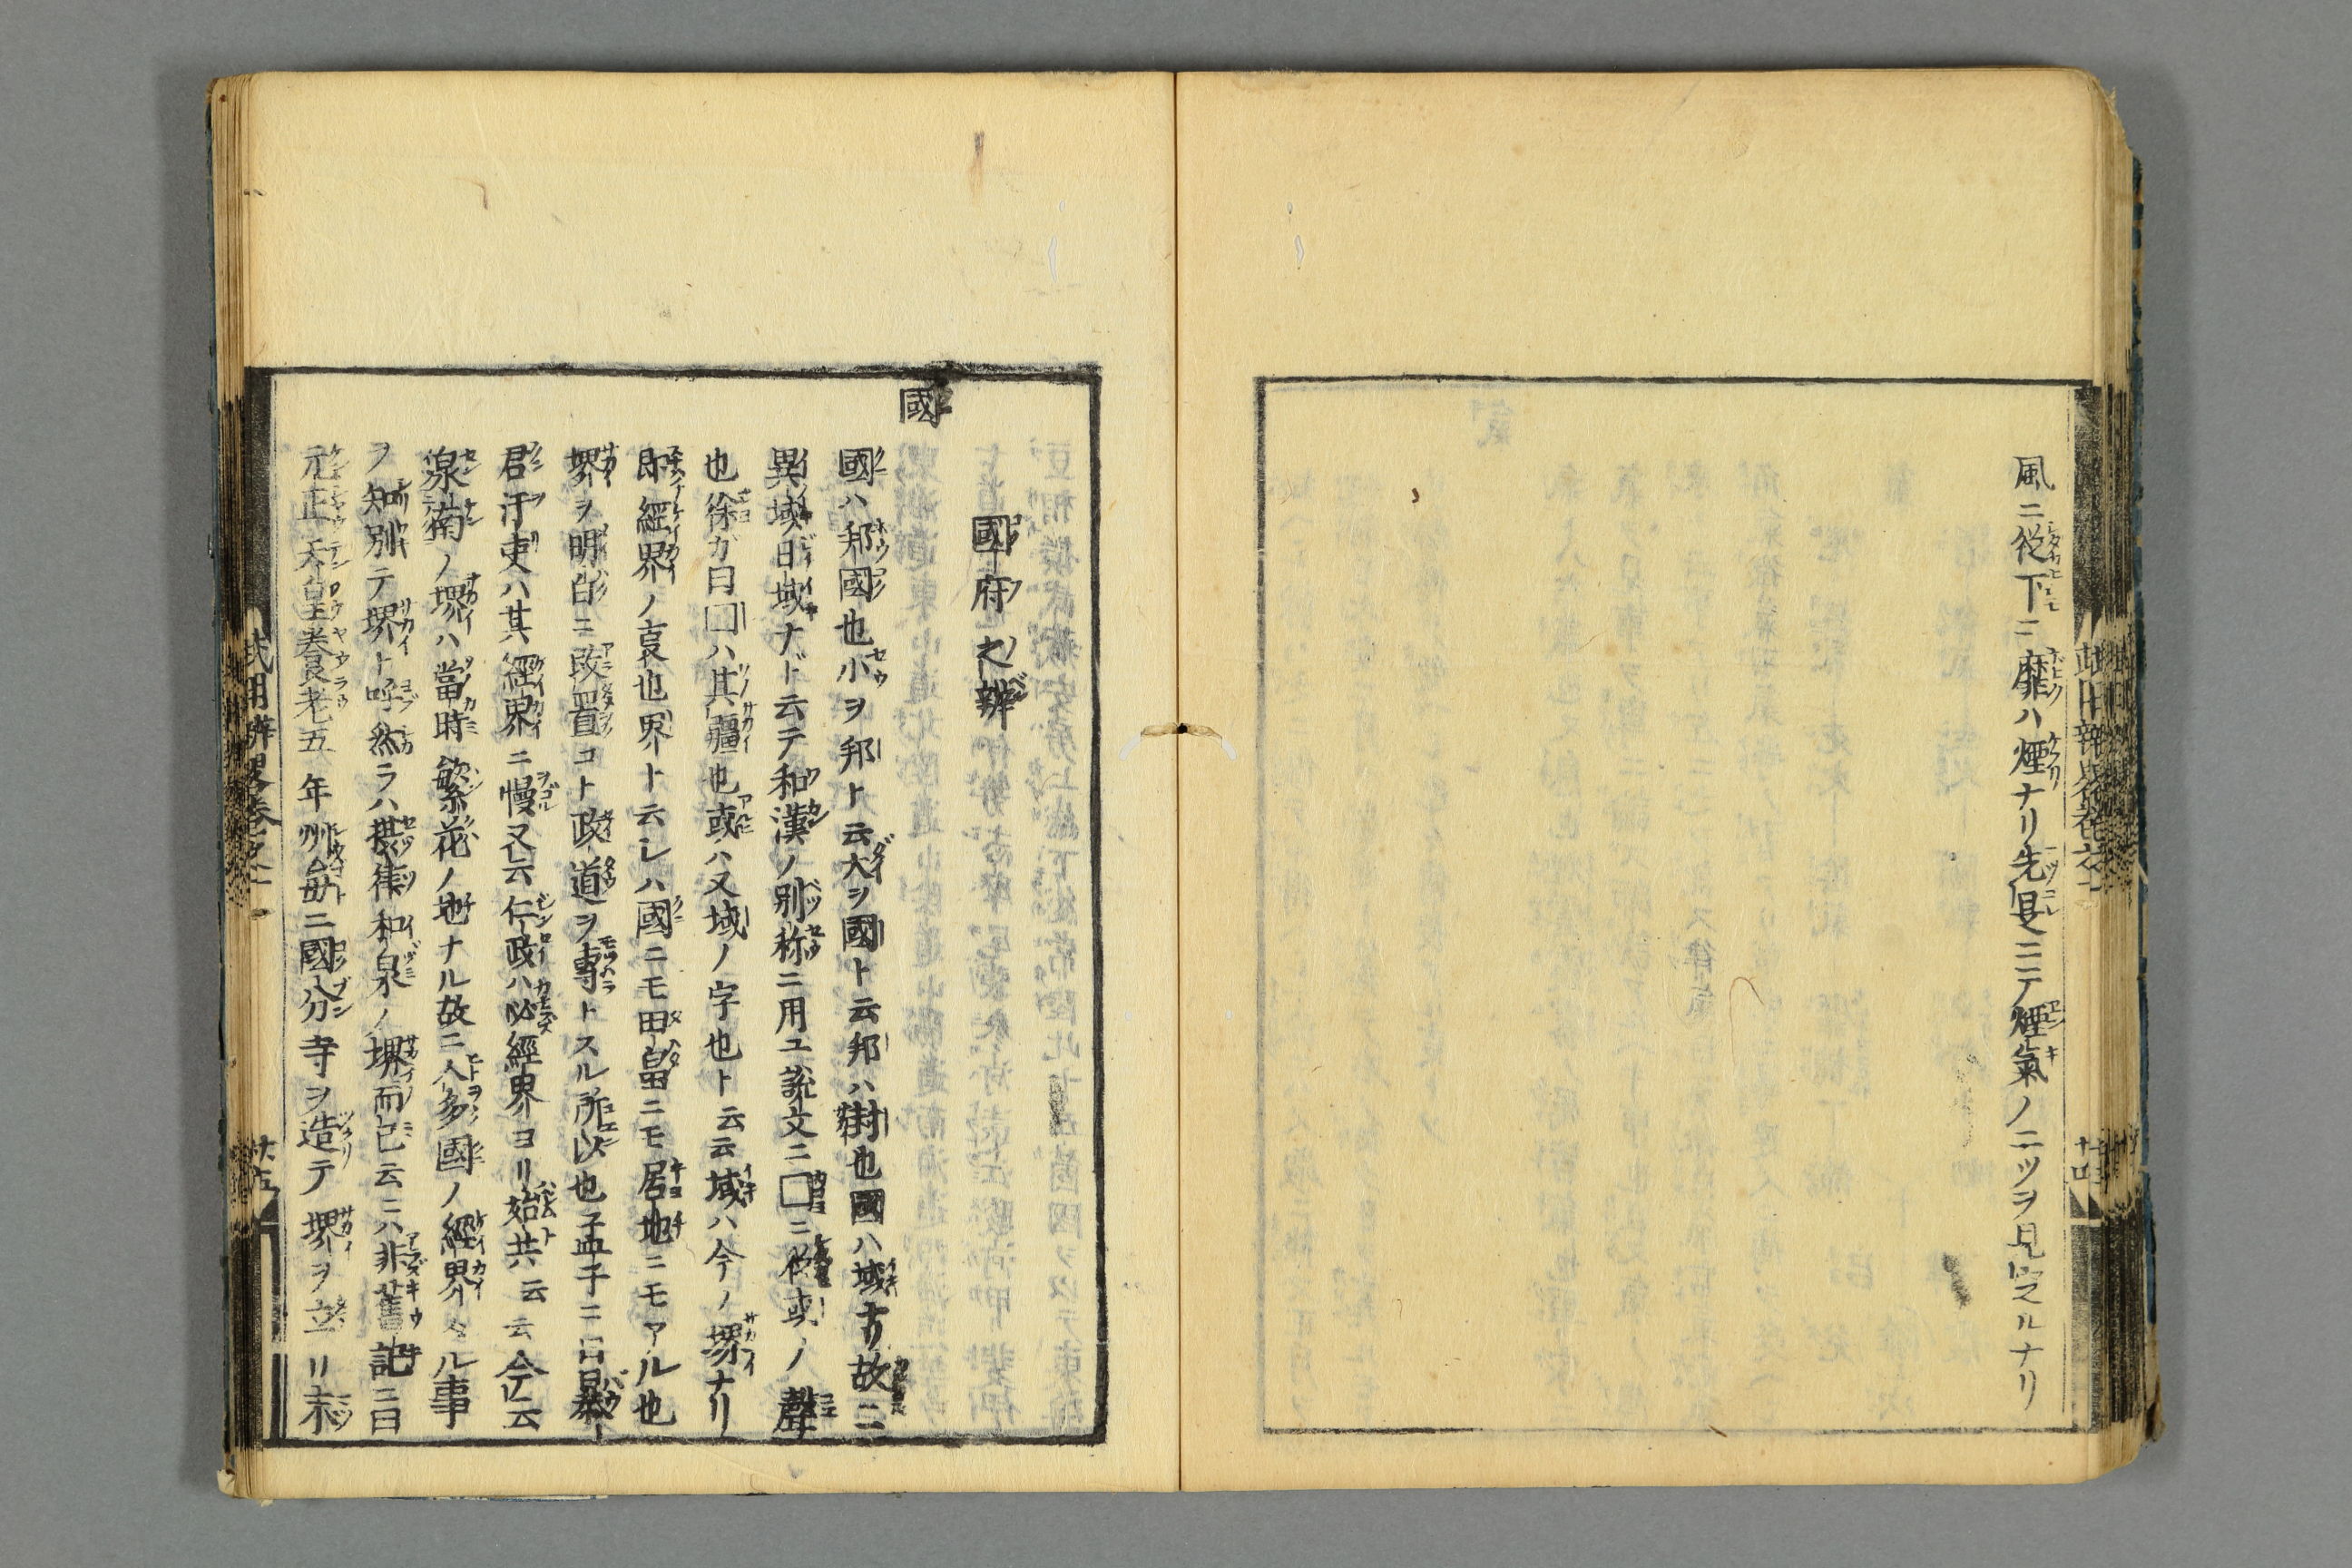 風ニ従下ニ靡ハ煙ナリ先是ニテ煙氣ノ二ツヲ見定ルナリ
國府之辨
國
國ハ邦國也小ヲ邦ト云大ヲ國ト云邦ハ封也國ハ域ナリ故ニ
異域日域ナド云テ和漢ノ別称ニ用ユ説文ニ囗ニ从或ノ聲
也徐ガ曰囗ハ其疆也或ハ又域ノ字也ト云云域ハ今ノ堺ナリ
即經界ノ裏也界ト云レハ國ニモ田畠ニモ居地ニモアル也
堺ヲ明白ニ改置コト政道ヲ專トスル所以也孟子ニ曰暴
君汙吏ハ其經界ニ慢又云仁政ハ必經界ヨリ始共云云今云
泉南ノ堺ハ當時繁花ノ地ナル故ニ人多國ノ經界タル事
ヲ知別テ堺ト呼然ラハ摂津和泉ノ堺而已云ニハ非舊記ニ曰
元正天皇養老五年州毎ニ國分寺ヲ造テ堺ヲ立リ末
武用辨畧巻之一